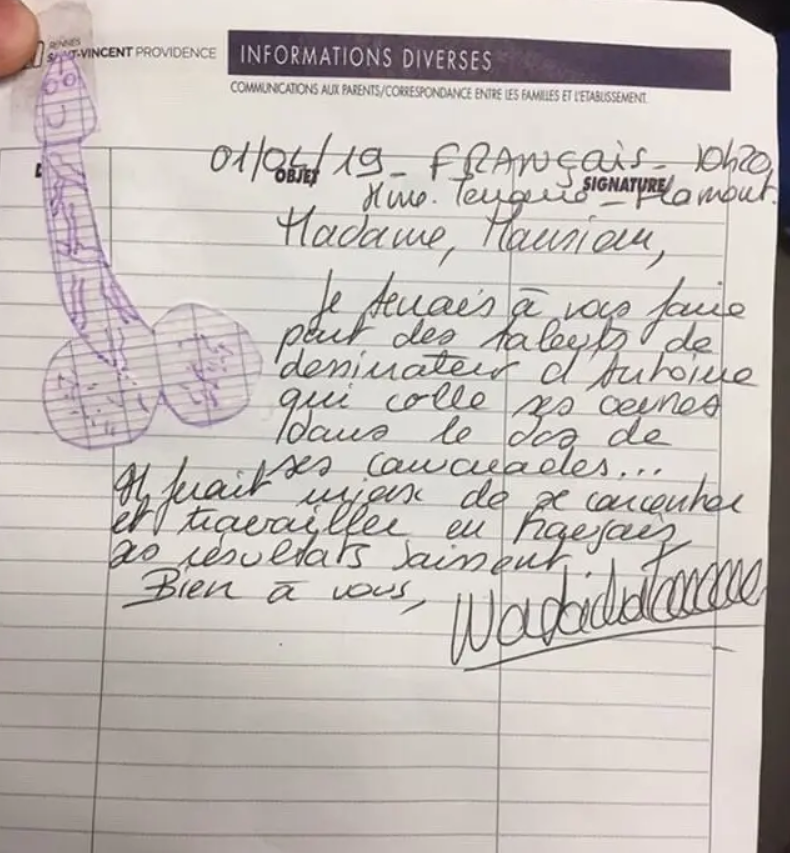 RENNES
SAINT-VINCENT PROVIDENCE
INFORMATIONS DIVERSES
COMMUNICATIONS AUX PARENTS/CORRESPONDANCE ENTRE LES FAMILLES ET L'ETABLISSEMENT.
OBJET
SIGNATURE
01/04/19 - FRANÇais - 10h20
Mme. - Flamout.
Madame, Monsieur,
Je tenais à vous faire
part des talents de
dessinateur d'Antoine
qui colle ses œuvres
dans le dos de
ses camarades...
Il ferait mieux de se concentrer
et travailler en français
ses résultats baissent.
Bien à vous,